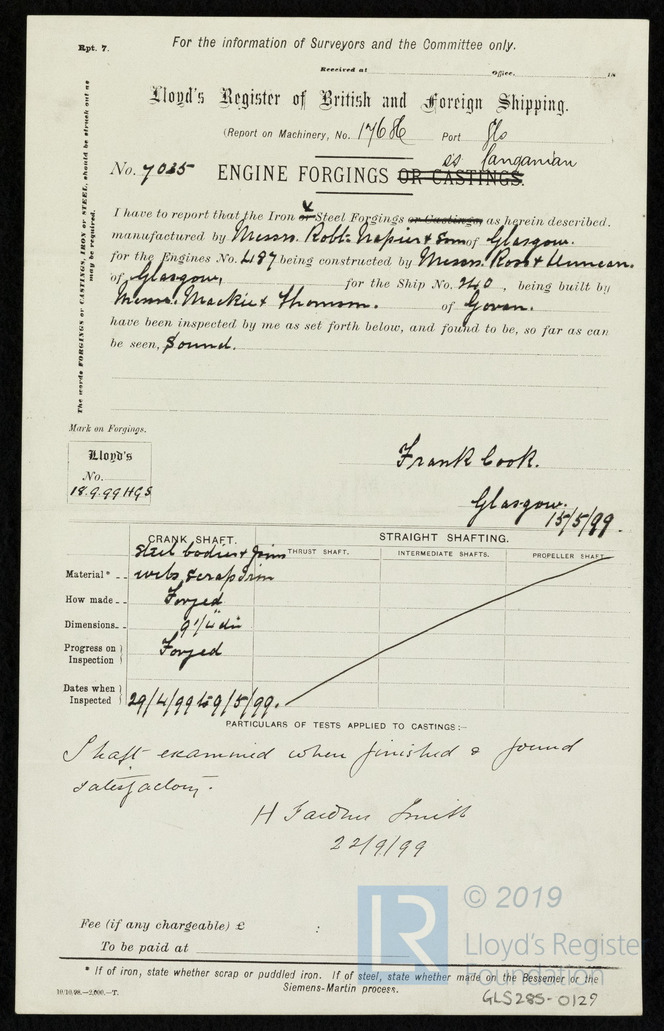 Rpt. 7.
For the information of Surveyors and the Committee only.
Received at Office, 18
Lloyd's Register of British and Foreign Shipping.
(Report on Machinery, No. 17686 Port Gls
ss Janganian
No. 7035 ENGINE FORGINGS OR CASTINGS.
I have to report that the Iron or Steel Forgings or Castings, as herein described.
manufactured by Messrs. Robt. Napier & Sons of Glasgow.
for the Engines No. 487 being constructed by Messrs. Ross & Duncan.
of Glasgow, for the Ship No. 240, being built by
Messrs. Mackie & Thomson. of Govan.
have been inspected by me as set forth below, and found to be, so far as can
be seen, Sound.
The words FORGINGS or CASTINGS, IRON or STEEL, should be struck out as
may be required.
Mark on Forgings.
Lloyd's
No.
18.9.99 HGS
Frank Cook.
Glasgow.
15/5/99.
CRANK SHAFT. STRAIGHT SHAFTING.
THRUST SHAFT. INTERMEDIATE SHAFTS. PROPELLER SHAFT.
Steel bodies & pins
Material* webs scrap Iron
How made Forged
Dimensions 9 1/4" di
Progress on Inspection Forged
Dates when Inspected 29/4/99 to 9/5/99.
PARTICULARS OF TESTS APPLIED TO CASTINGS:—
Shaft examined when finished & found
satisfactory.
H Gardner Smith
22/9/99
Fee (if any chargeable) £ :
To be paid at
* If of iron, state whether scrap or puddled iron. If of steel, state whether made on the Bessemer or the
Siemens-Martin process.
10/10.98.—2,000.—T.
LR
© 2019
Lloyd's Register
Foundation
GLS285-0129